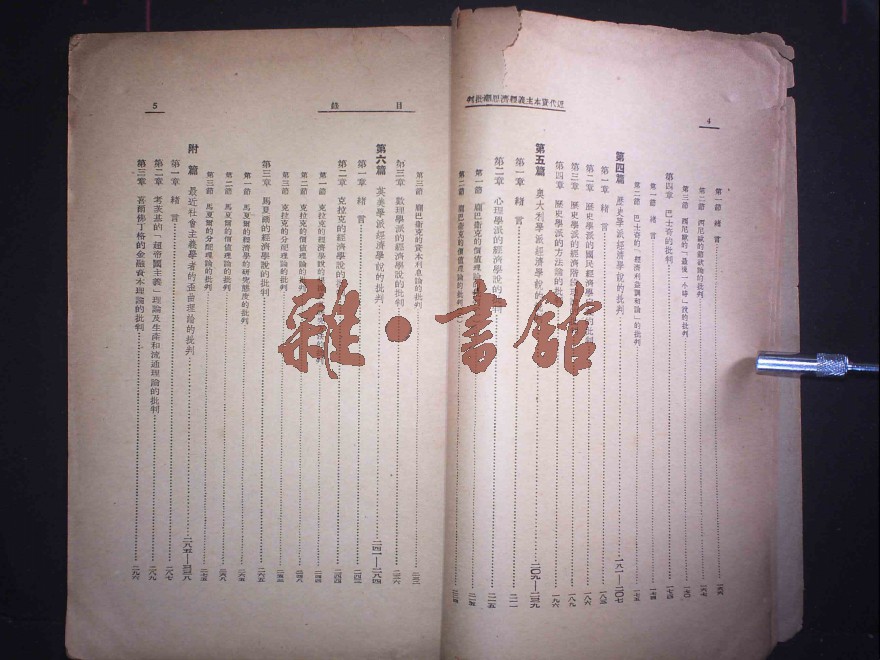 近代資本主義經濟思潮批判
4
第一節 緒言
第二節 西尼爾的節欲論的批判
第三節 西尼爾的「最後一小時」說的批判
第四章 巴士奇的批判
第一節 緒言
第二節 巴士奇的「經濟利益調和論」的批判
第四篇 歷史學派經濟學說的批判 一八一—二〇七
第一章 緒言 一八三
第二章 歷史學派的國民經濟學 的批判 一八六
第三章 歷史學派的經濟階段 一八九
第四章 歷史學派的方法論的批判 一九六
第五篇 奧大利學派經濟學說的批判 二〇九—二三九
第一章 緒言 二一一
第二章 心理學派的經濟學說的批判 二一五
第一節 龐巴衛克的價值理論
第二節 龐巴衛克的價值理論的批判
目錄
5
第三節 龐巴衛克的資本利息論的批判
第三章 數理學派的經濟學說的批判 二三六
第六篇 英美學派經濟學說的批判 二四一—二八四
第一章 緒言 二四三
第二章 克拉克的經濟學說的批判 二四四
第一節 克拉克的經濟學說的 二四四
第二節 克拉克的價值理論的批判 二四八
第三節 克拉克的分配理論的批判 二五三
第三章 馬夏爾的經濟學說的批判 二六五
第一節 馬夏爾的經濟學的研究態度的批判 二六五
第二節 馬夏爾的價值理論的批判 二六八
第三節 馬夏爾的分配理論的批判 二七五
附篇 最近社會主義學者的歪曲理論的批判 二八五—三三九
第一章 緒言 二八七
第二章 考茨基的「超帝國主義」理論及生產和流通理論的批判 二八九
第三章 喜爾佛丁格的金融資本理論的批判 二九六
雜·書館